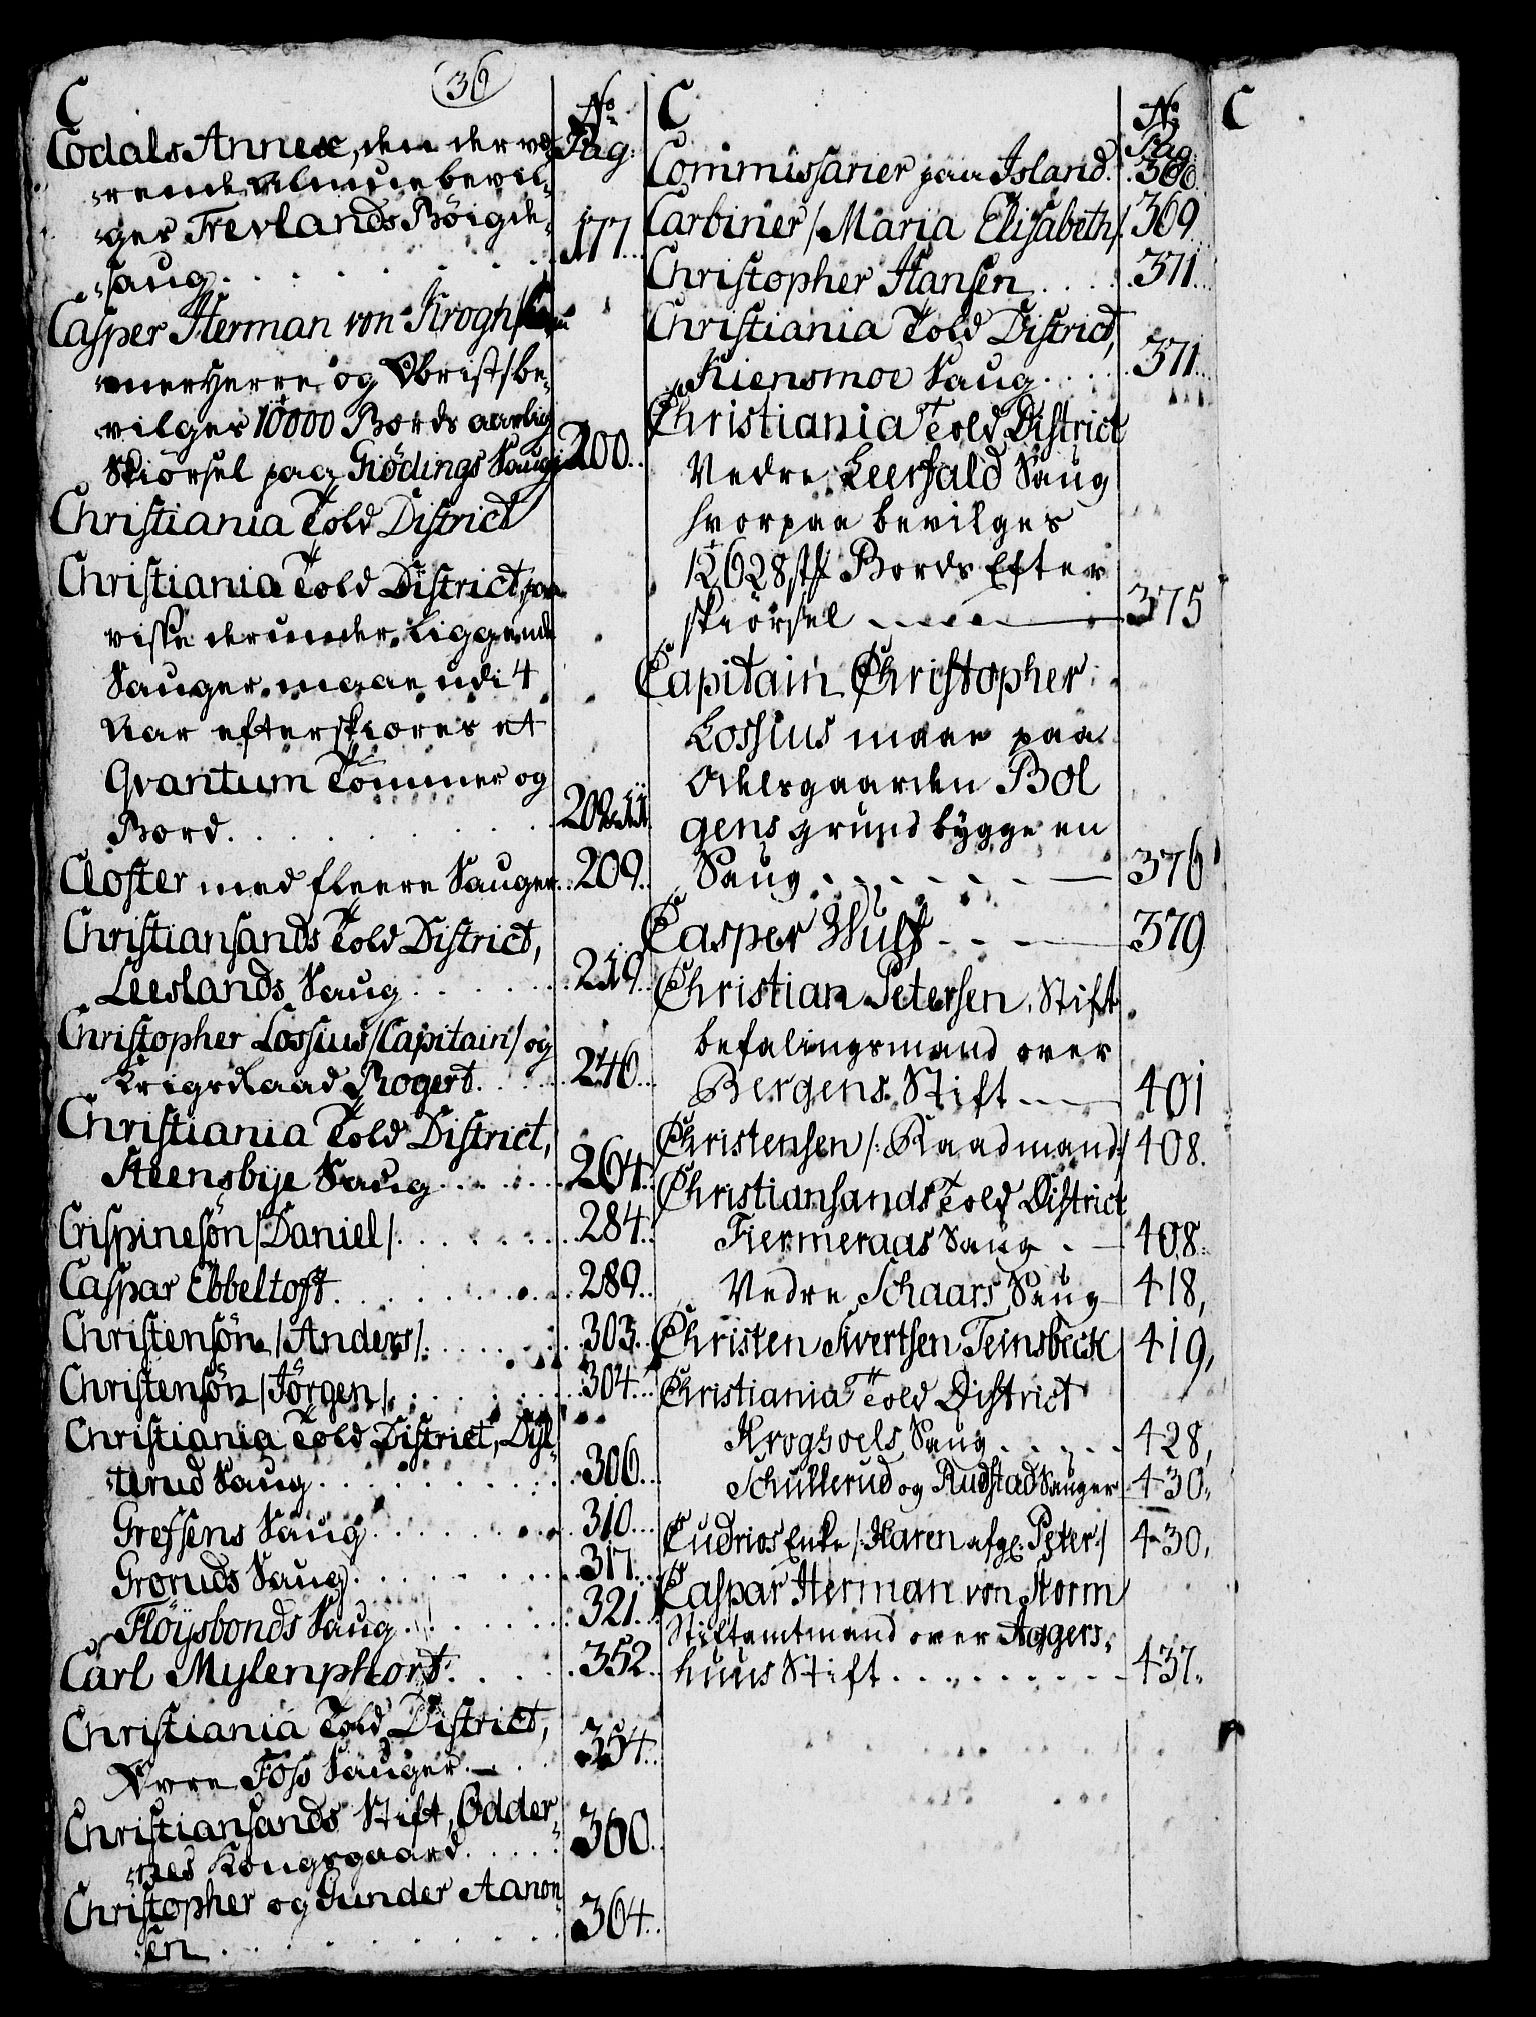 36
C
No
Pag:
Codals Annex, den der væ-
rende Almue bevil-
ges Trevlands Böigde
saug . . . . . . . . 177.
Casper Herman von Krogh/
merHerre og Obrist/be-
vilges 10000 Bords aarlig
Skiörsel paa Giödings Saug 200.
Christiania Told District
Christiania Told District, paa
visse derunder liggende
Sauger maae udi 4
Aar efterskiæres et
Qvantum Tömmer og
Bord . . . . . . . .
Closter med fleere Sauger. 209.
Christiansands Told District,
Leeslands Saug . . . . . 219.
Christopher Lossius/Capitain/og
KrigsRaad Rogert . . . 246.
Christiania Told District,
Steensbije Saug . . . . . 264.
Crispinesön/Daniel/. . . . . . 284.
Caspar Ebbeltoft . . . . . . 289.
Christensön/Anders/. . . . . . 303.
Christensön/Jörgen/. . . . . . 304.
Christiania Told District, Dyl-
terud Saug . . . . . . . 306.
Grefsens Saug . . . . . . 310.
Groruds Saug . . . . . . 317.
Flöysbonds Saug . . . . . 321.
Carl Mylenphort . . . . 352.
Christiania Told District,
Övre Foss Sauger . . . 354.
Christiansands Stift, Odder-
nes Kongsgaard . . . . . 360.
Christopher og Gunder Aanon-
sen . . . . . . . . . 364.
C
No
Pag:
Commissarier paa Island. 366.
Carbiner/Maria Elisabeth/. 369
Christopher Hansen . . . . 371.
Christiania Told District,
Kiensmoe Saug . . . . 371.
Christiania Told District
Nedre Leerfald Saug
hvorpaa bevilges
12628 st Bords Efter
skiörsel . . . . . 375
Capitain Christopher
Lossius maae paa
Odelsgaarden Bol
gens grund bygge en
Saug . . . . . . 376
Casper Wulf - - - 379
Christian Petersen, Stift
befalingsmand over
Bergens Stift - - - 401
Christensen/: Raadmand:/ 408.
Christiansands Told District
Fiermeraas Saug . - 408.
Nedre Schaars Saug 418,
Christen Sivertsen Teinsbeck 419,
Christiania Told District
Kroghoels Saug . . . . . 428,
Schullerud og Rudstad Sauger 430,
Cudrios Enke/: Karen afg. Peter:/ 430,
Caspar Herman von Storm
Stiftamtmand over Aggers-
huus Stift . . . . . . . . 437.
C